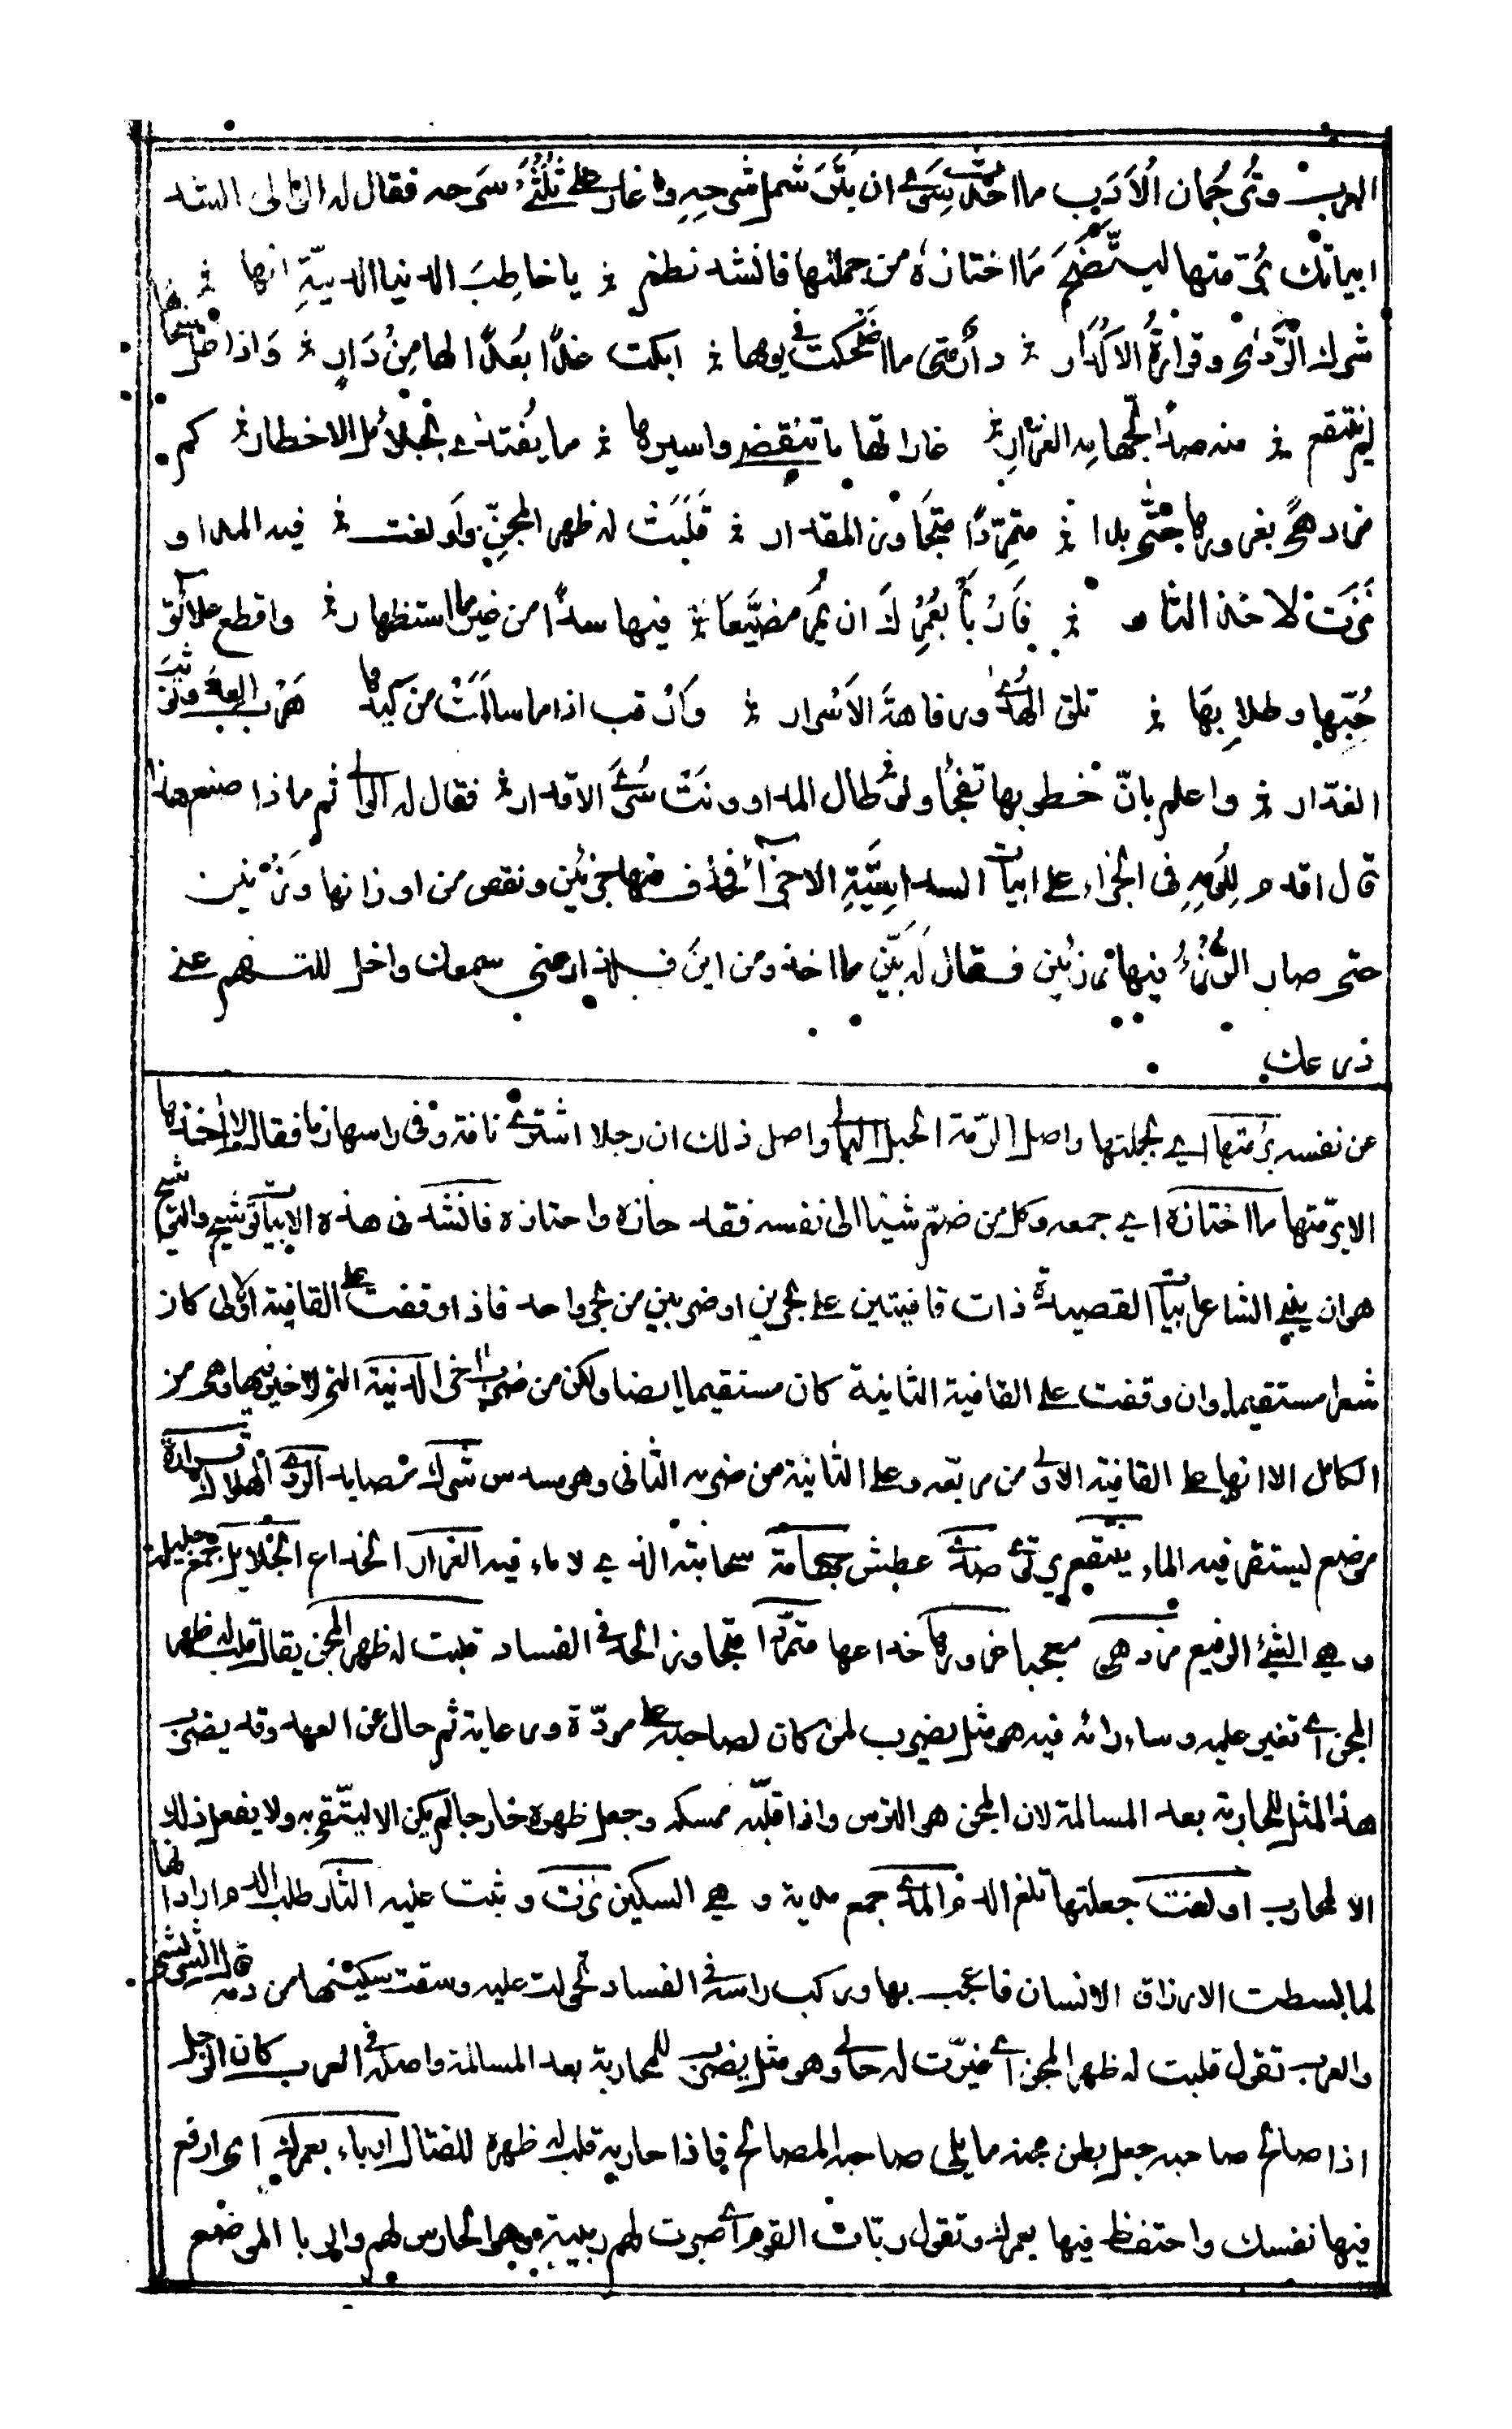 العرب وترجمان الادب ما احدث سوى ان بتر شمل شرحه واغار على ثلثي سرحه فقال له الوالى انشد
ابياتك برمتها ليتضح ما احتازه من جملتها فانشد نظم يا خاطِبَ الدنيا الدنيّةِ انها
شرك الرّدىٰ وقرارةُ الاكدار دارٌ متى ما اضحكت فى يومها ابكت غدًا بعدًا لها مِنْ دَارٍ وَاذا اظل سحابها
لم ينتقع منه صدًا لجهامه الغرّارِ غاراتها ما تنقضى واسيرها ما يُفتدى بجلائل الاخطار كم
مزدهىً بغرورها حتّى بدا متمرّدًا متجاوز المقدار قَلَبَتْ له ظهر المجنّ واَولغت فيه المدا و
نَزَت لاخذ الثار فَارْبَأْ بعُمْرِكَ ان يمُر مضيَّعا فيها سدًا من غير ما استظهار واقطع علائق
حُبّها وطلابِهَا تلق الهُدىٰ ورفاهةَ الاَسْرار وَارْقب اذا ما سالَمَتْ من كيدها حَرْبَ العدى وتوثّبَ
الغدّار واعلم بانّ خطوبها تفجأ ولو طال المدا وونَتْ سُرَى الاقدار فقال له الوالى ثم ماذا صنع هذا
قال اقدم للؤمه فى الجزاء على ابياتى السداسِيَّةِ الاجزآء فحذف منها جزئين ونقص من اوزانها وزنين
حتى صار الرُّزْءُ فيها رزئين فقال له بَيّن ما اخذ ومن اينَ فلذ فقال ارعنى سمعك واخل للتفهم عنى
ذرعك
عن نفسه برمتها اى بجملتها واصل الرّمة الحبل البالى واصل ذلك ان رجلا اشترى ناقة وفى راسها زما فقال لا اخذها
الا برمّتها ما احتازه اى جمعه وكل من ضمّ شيئا الى نفسه فقد حازه واحتازه فانشد فى هذه الابيات توشيح والتوشيح
هو ان يبنى الشاعر ابيات القصيدة ذات قافيتين على بحرين او ضربين من بحر واحد فاذا وقفت على القافية الاولى كان
شعرا مستقيما وان وقفت على القافية الثانية كان مستقيما ايضا ولكن من ضرب اخر الدنية التى لا خير فيها وهو من
الكامل الا انها على القافية الاولى من مربعه وعلى الثانية من ضربه الثانى وهو مسدس شرك مصايد الردى الهلاك قرارة
موضع يستقر فيه الماء ينتقع يرتوى صدى عطش جهامة سحابته الذى لا ماء فيه الغرار الخداع الجلايل جمع جليلة
وهى الشئ الرفيع مزدهى معجبا غرورها خداعها متمردا متجاوز الحد فى الفساد قلبت له ظهر المجن يقال قلب له ظهر
المجن اى تغير عليه وساء رائه فيه هو مثل يضرب لمن كان لصاحبه على مودّة ورعاية ثم حال عن العهد وقد يضرب
هذا المثل للمحاربة بعد المسالمة لان المجن هو الترس واذا قلّبه ممسكه وجعل ظهره خارجا لم يكن الا ليتّقى به ولا يفعل ذلك
الا لمحارب اولغت جعلتها تلغ الدم المدى جمع مدية وهى السكين نزت وثبت عليه الثار طلب الدم اراد انها
لما بسطت الارزاق الانسان فاعجب بها وركب راسه فى الفساد تحولت عليه وسقت سكينها من دمه قال الشريشى
والعرب تقول قلبت له ظهر المجن اى غيرّت له حالى وهو مثل يضرب للمحاربة بعد المسالمة واصله فى العرب كان الرجل
اذا صالح صاحبه جعل بطن مجنه مما يلى صاحبه المصالح فاذا حاربه قلب له ظهره للقتال ارباء بعمرك اى ارفع
فيها نفسك واحتفظ فيها بعمرك وتقول ربات القوم اى صرت لهم ربيئة وهو الحارس لهم والمربا الموضع